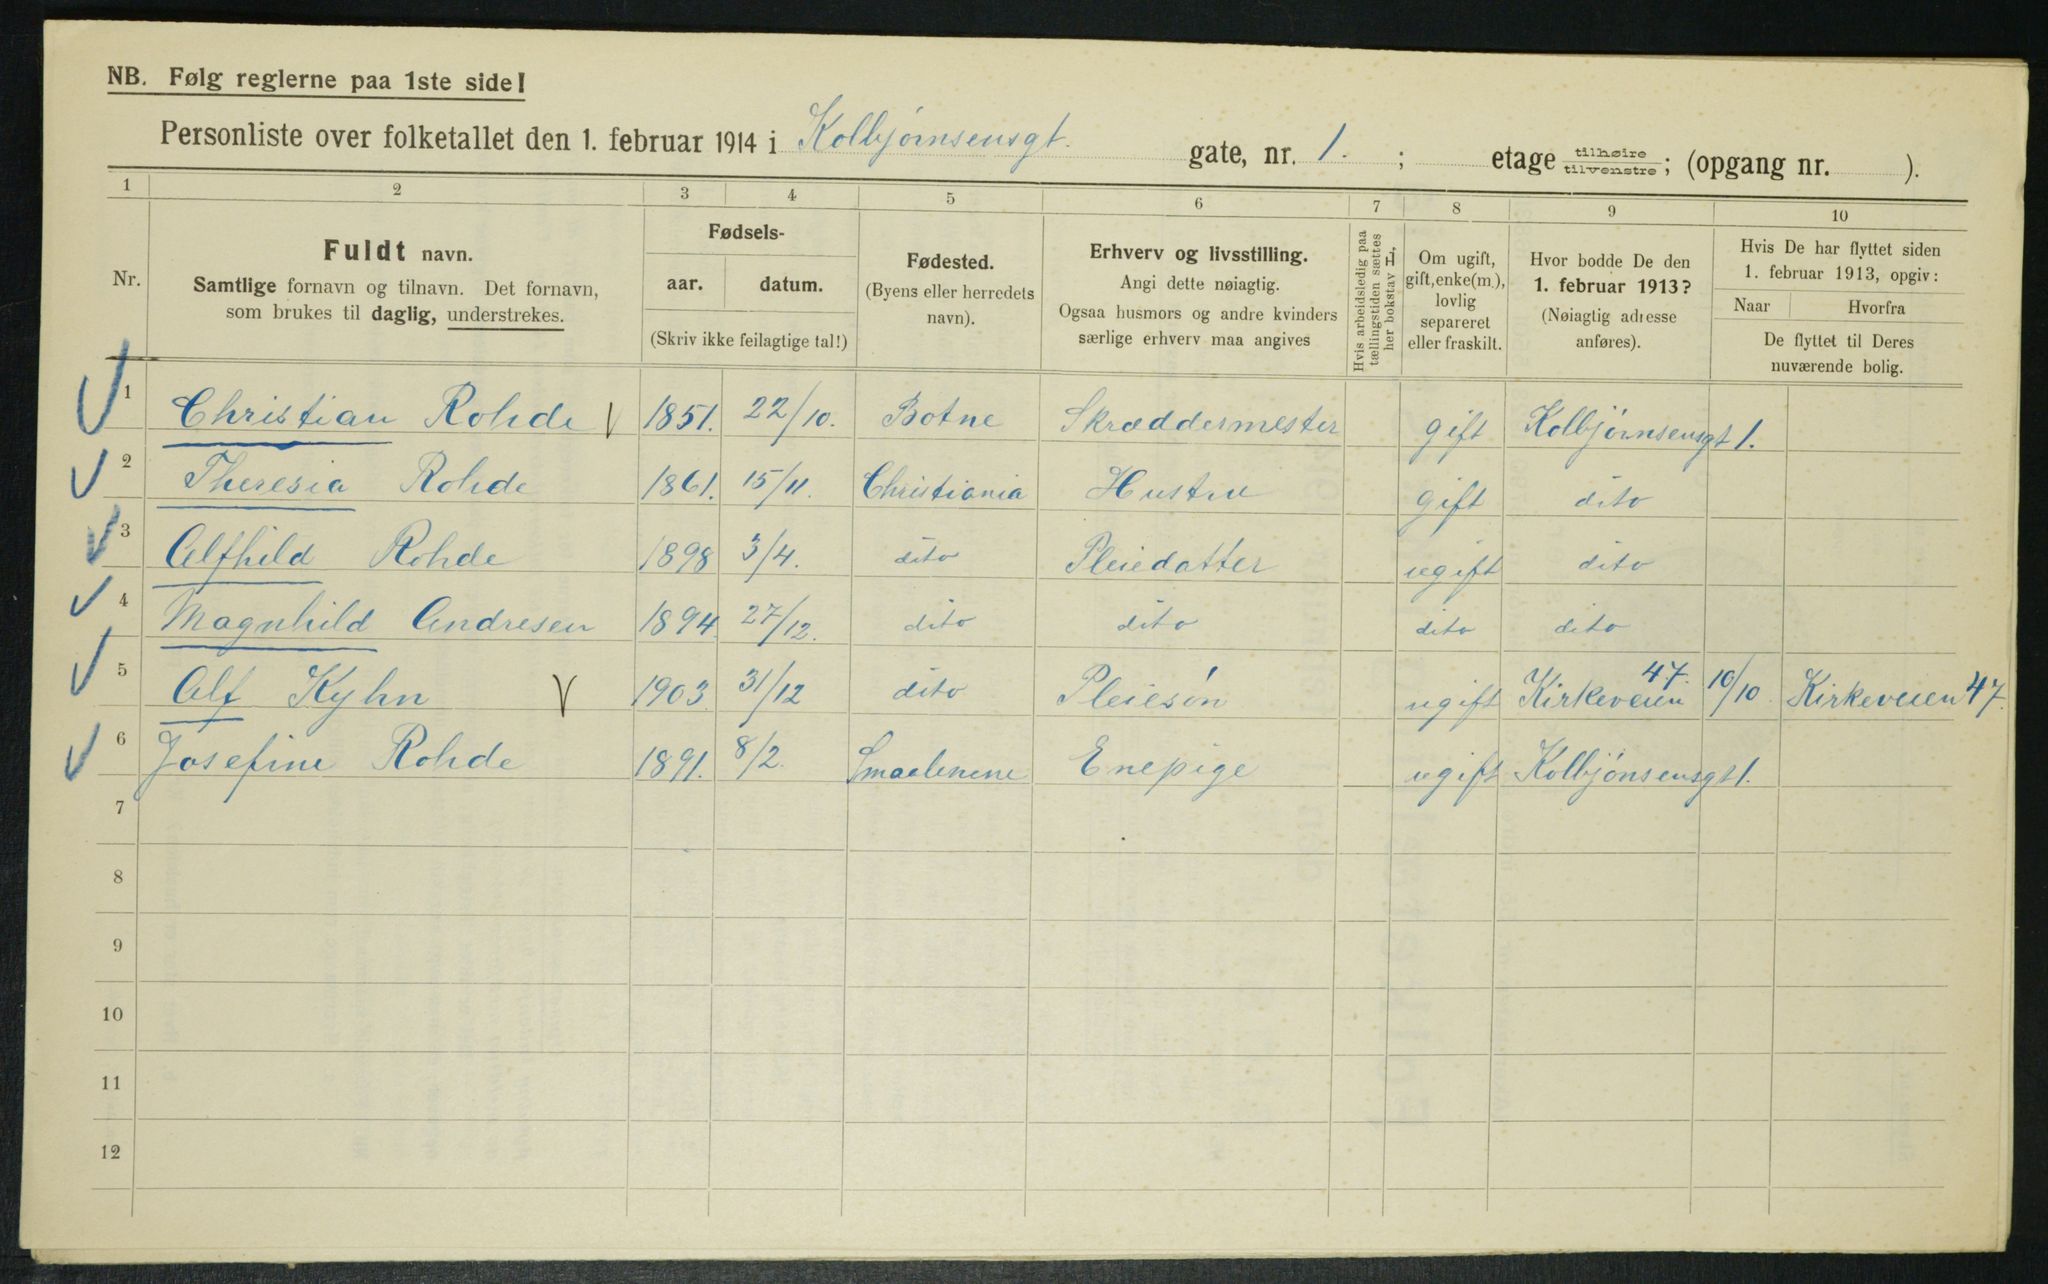 NB. Følg reglerne paa 1ste side!
Personliste over folketallet den 1. februar 1914 i Kolbjørnsensgt. gate, nr. 1. ; etage tilhøire/tilvenstre; (opgang nr. ).
1 2 3 4 5 6 7 8 9 10
Nr.
Fuldt navn.
Samtlige fornavn og tilnavn. Det fornavn,
som brukes til daglig, understrekes.
Fødsels-
aar. datum.
(Skriv ikke feilagtige tal!)
Fødested.
(Byens eller herredets
navn).
Erhverv og livsstilling.
Angi dette nøiagtig.
Ogsaa husmors og andre kvinders
særlige erhverv maa angives
Hvis arbeidsledig paa
tællingstiden sættes
her bokstav L,
Om ugift,
gift, enke(m.),
lovlig
separeret
eller fraskilt.
Hvor bodde De den
1. februar 1913?
(Nøiagtig adresse
anføres).
Hvis De har flyttet siden
1. februar 1913, opgiv:
Naar Hvorfra
De flyttet til Deres
nuværende bolig.
1 Christian Rohde V 1851. 22/10. Botne Skræddermester gift Kolbjørnsensgt 1.
2 Theresia Rohde 1861. 15/11. Christiania Hustru gift dito
3 Alfhild Rohde 1898 3/4. dito Pleiedatter ugift dito
4 Magnhild Andresen 1894 27/12. dito dito dito dito
5 Alf Kyhn V 1903 31/12 dito Pleiesøn ugift Kirkeveien 47. 10/10. Kirkeveien 47.
6 Josefine Rohde 1891. 8/2. Smaalenene Enepige ugift Kolbjønsensgt 1.
7
8
9
10
11
12